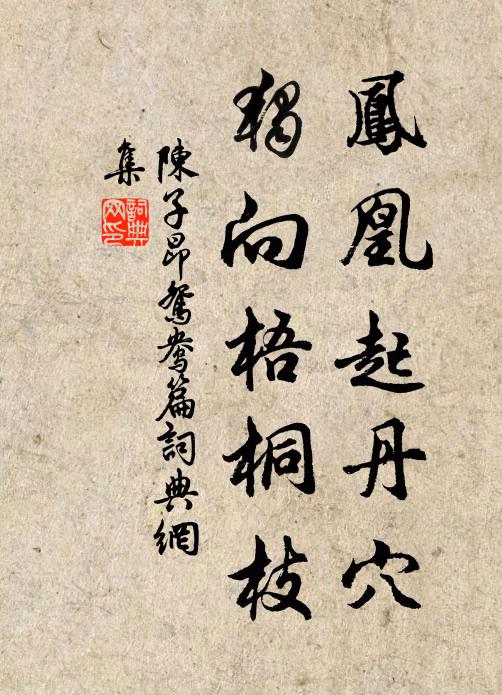 鳳凰起丹穴
獨向梧桐枝
陳子昂鴛鴦篇詞典網
集
詞典網印